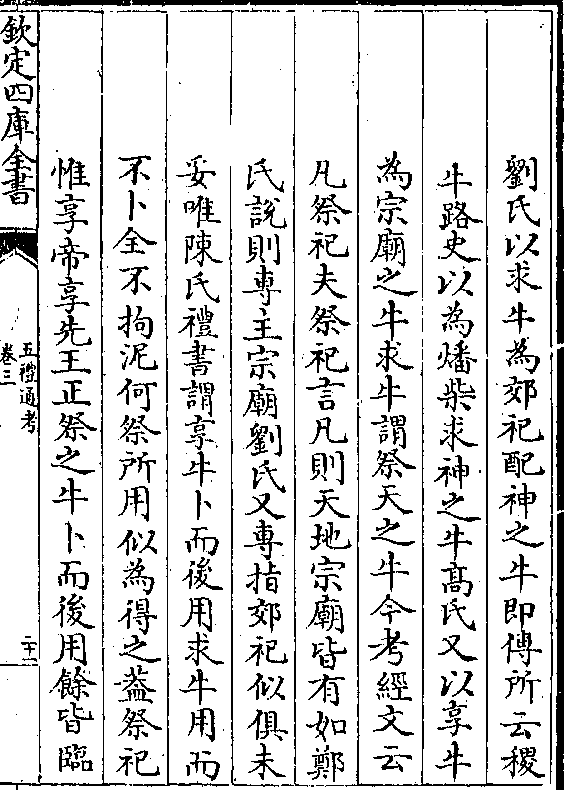 劉氏以求牛為郊祀配神之牛即傳所云稷
牛路史以為燔柴求神之牛髙氏又以享牛
為宗廟之牛求牛謂祭天之牛今考經文云
凡祭祀夫祭祀言凡則天地宗廟皆有如鄭
氏說則專主宗廟劉氏又專指郊祀似俱未
妥唯陳氏禮書謂享牛卜而後用求牛用而
不卜全不拘泥何祭所用似為得之葢祭祀
惟享帝享先王正祭之牛卜而後用餘皆臨
欽定四庫全書
五禮通考
卷三
二十一